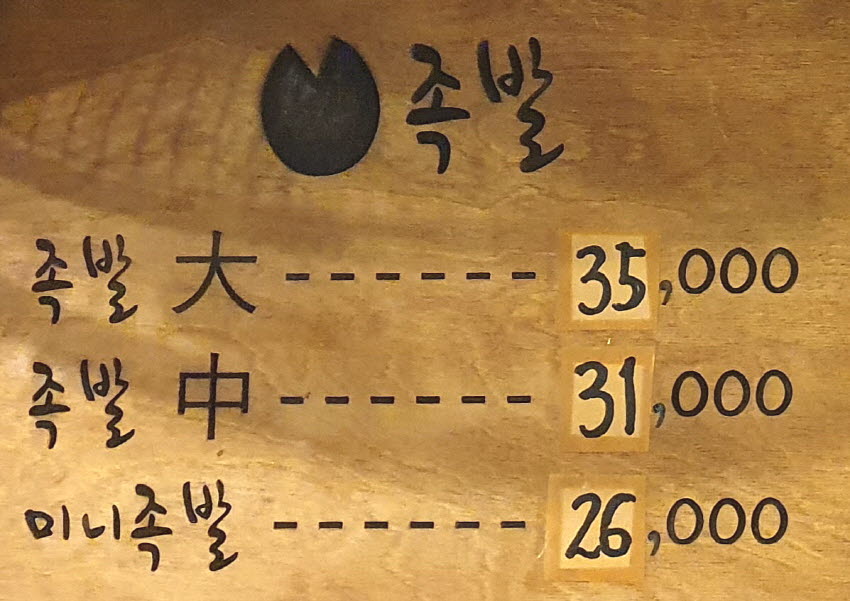 족발
족발 大 ------ 35,000
족발 中 ------ 31,000
미니족발 ------ 26,000